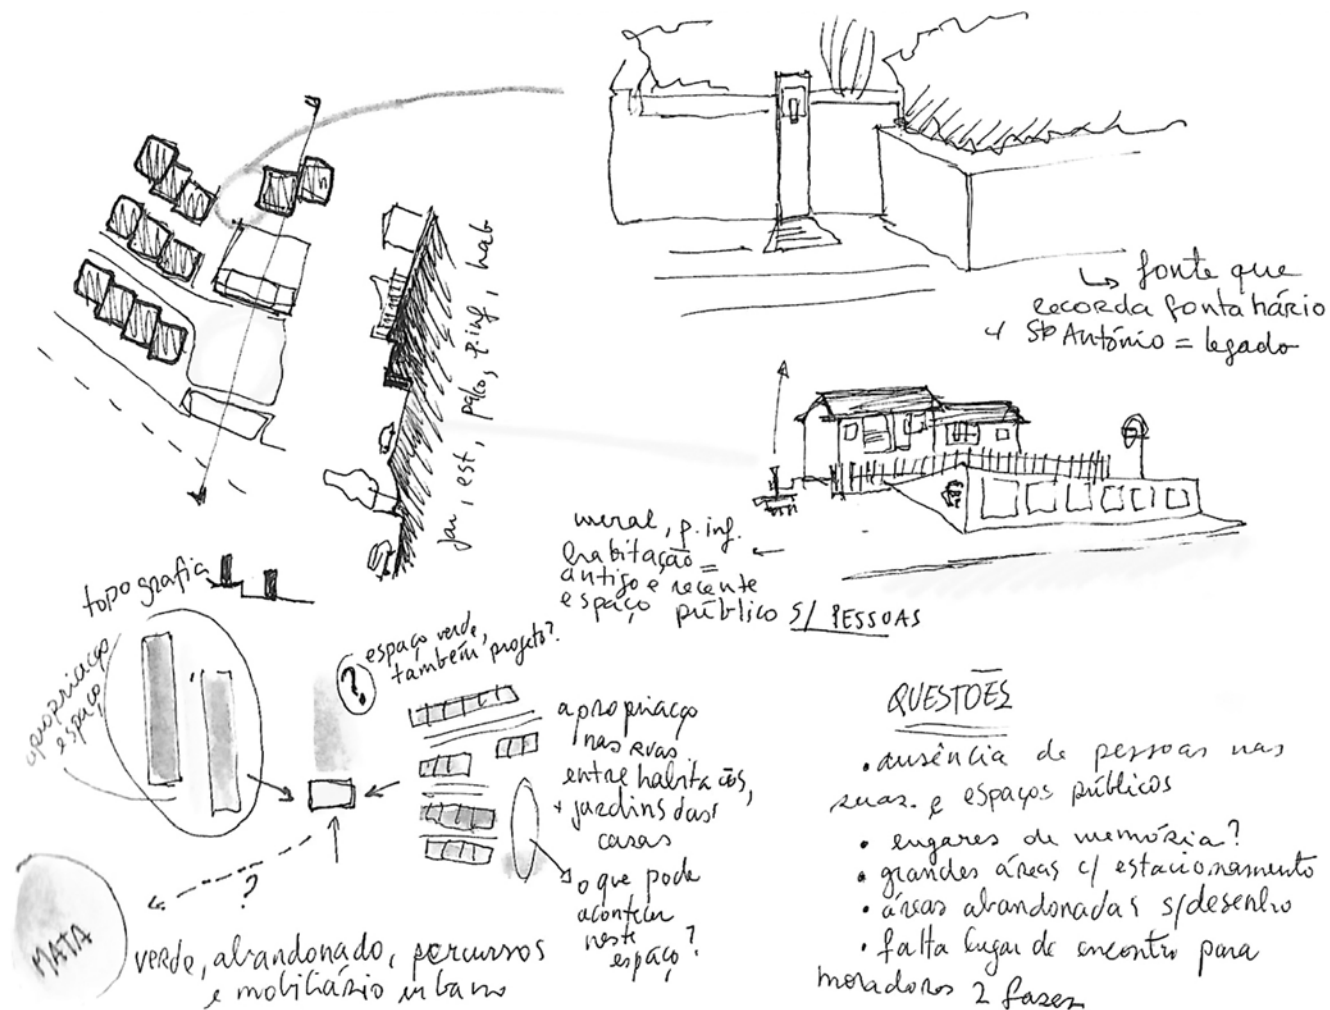 ↳ fonte que
recorda fontanário
Sto António = legado
jar, est, palco, p.inf, hab
mural, p.inf.
habitação =
antigo e recente
espaço público S/ PESSOAS
topografia
apropriaço
espaço
? espaço verde,
também projeto?
apropriaço
nas ruas
entre habitações,
+ jardins das
casas
o que pode
acontecer
neste
espaço?
?
MATA
verde, abandonado, percursos
e mobiliário urbano
QUESTÕES
• ausência de pessoas nas
ruas e espaços públicos
• lugares de memória?
• grandes áreas c/ estacionamento
• áreas abandonadas s/desenho
• falta lugar de encontro para
moradores 2 fases